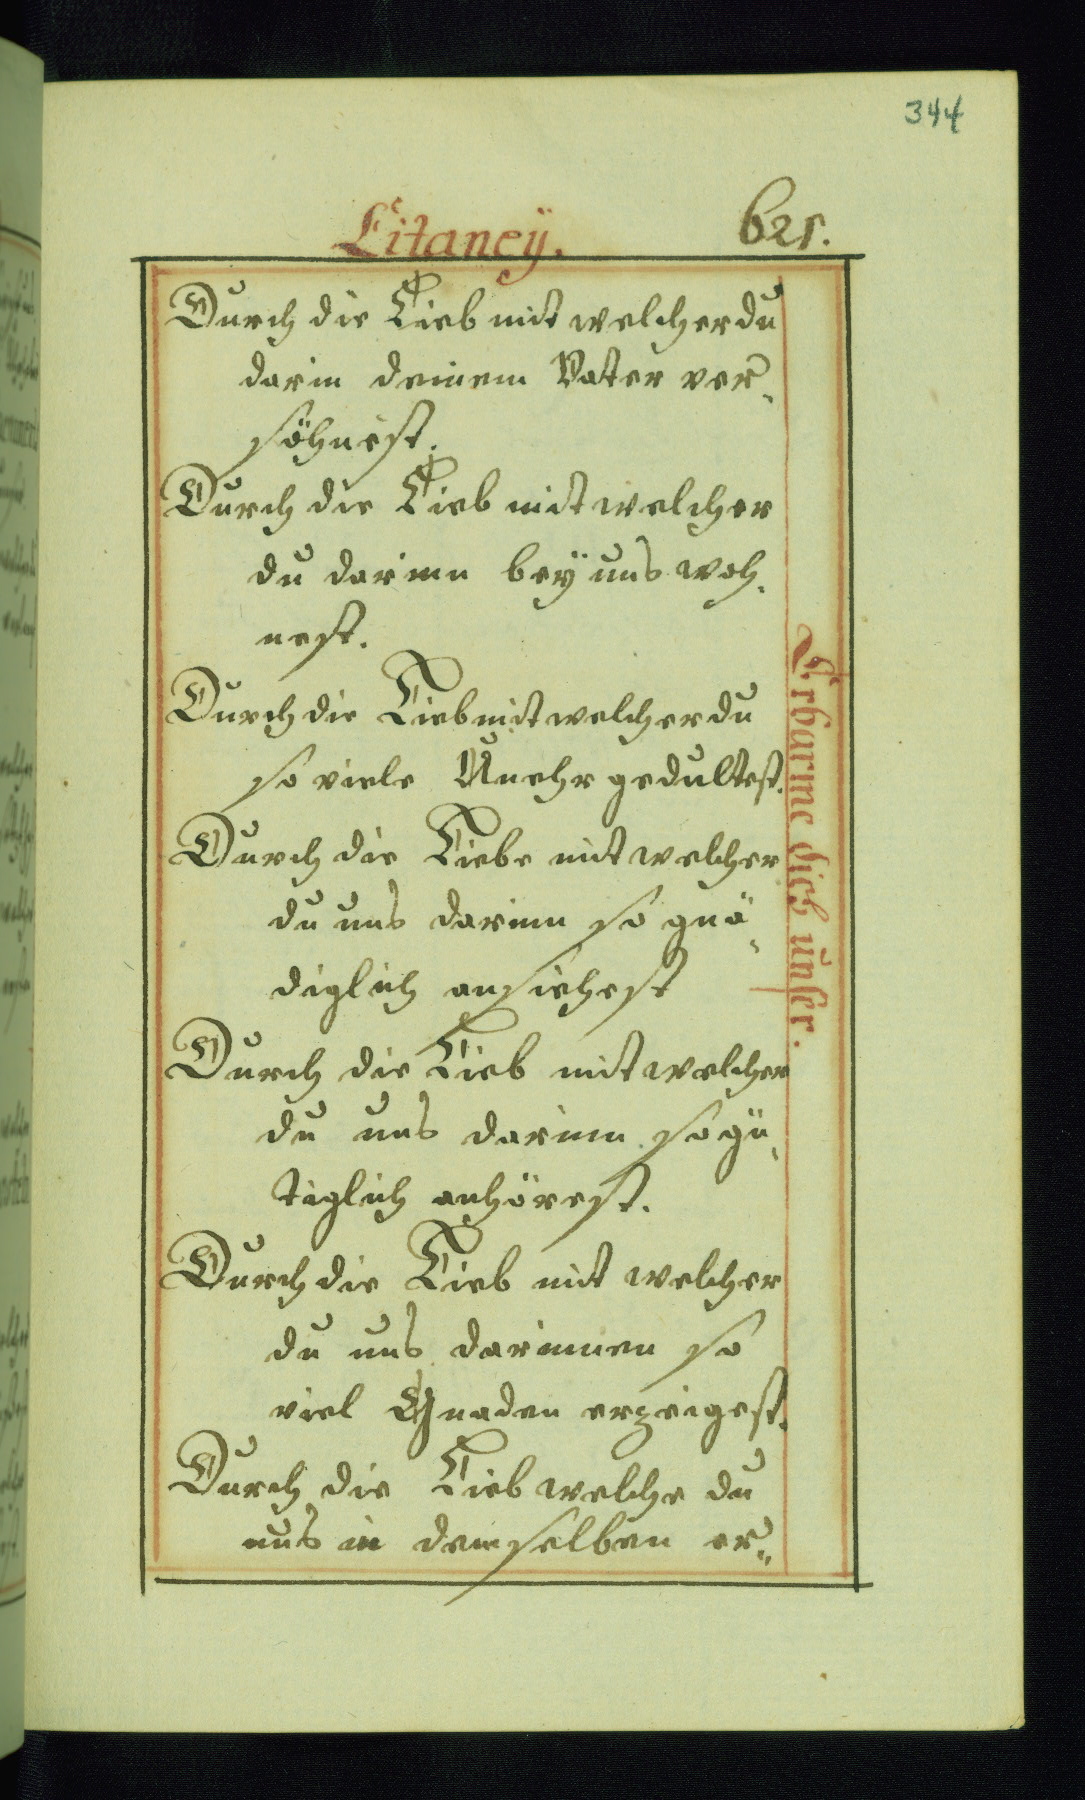 344
Litaney.
621.
Durch die Lieb mit welcher du
darin deinem Vater ver-
söhnest.
Durch die Lieb mit welcher
du darinn beÿ uns woh-
nest.
Durch die Lieb mit welcher du
so viele Unehr gedultest.
Durch die Liebe mit welcher
du uns darinn so gnä-
diglich ansiehest
Durch die Lieb mit welcher
du uns darinn so gü-
tiglich anhörest.
Durch die Lieb mit welcher
du uns darinnen so
viel Gnaden erzeigest.
Durch die Lieb welche du
uns in demselben er-
Erbarme dich unser.